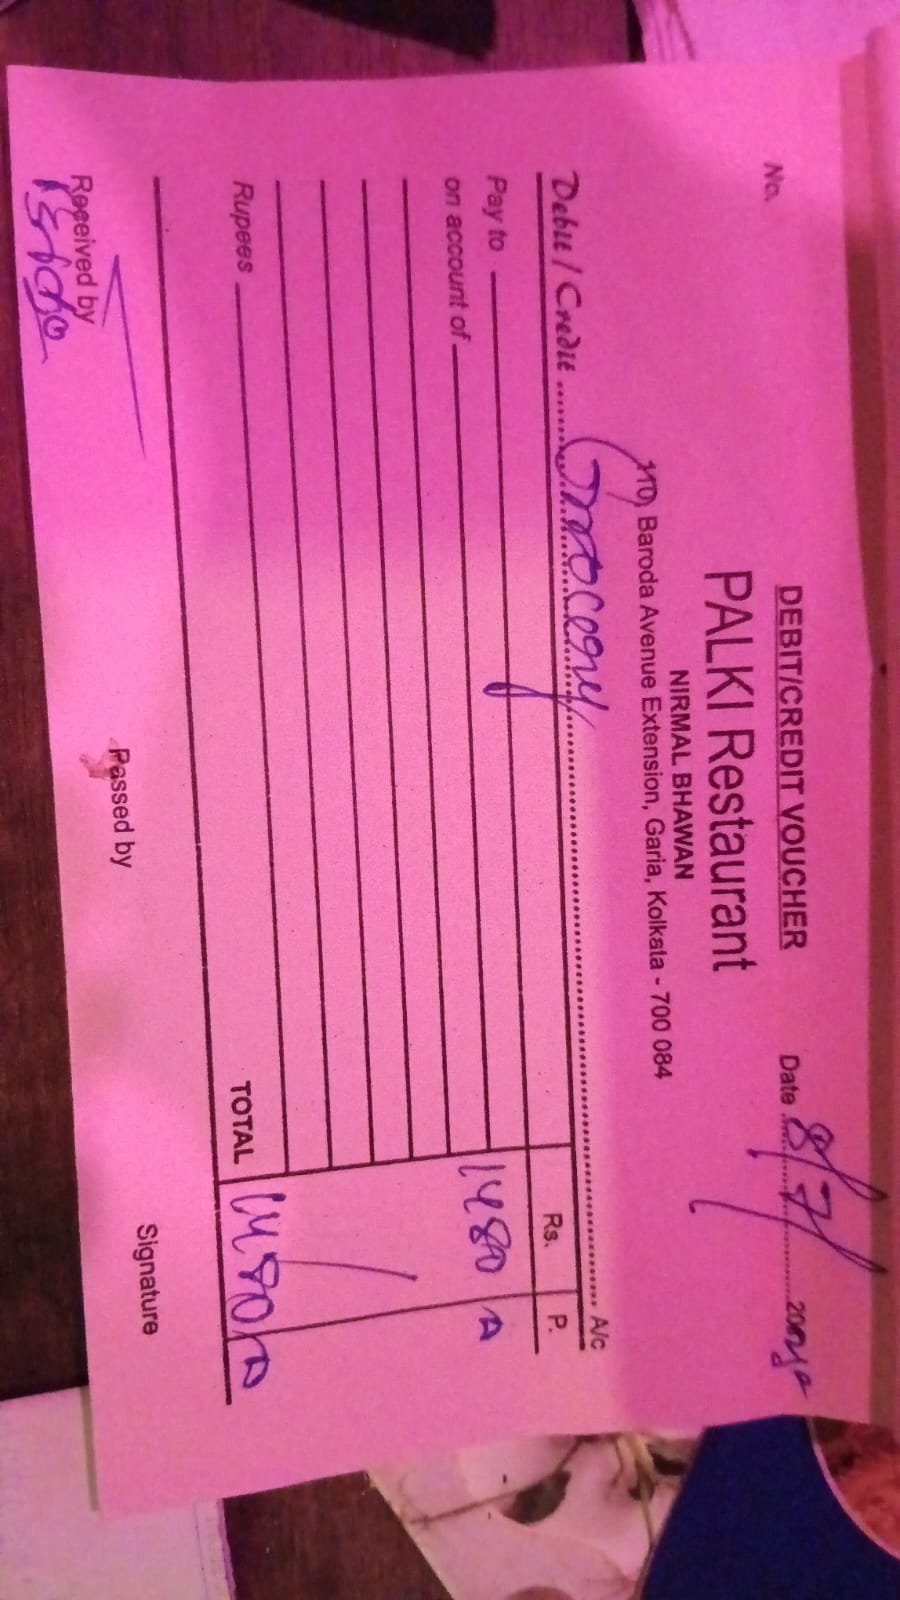 DEBIT/CREDIT VOUCHER
No.
Date 8/7/
PALKI Restaurant
NIRMAL BHAWAN
110, Baroda Avenue Extension, Garia, Kolkata - 700 084
Debit / Credit Grocery A/c
Rs. P.
Pay to
on account of 1480
Rupees TOTAL 1480
Received by Passed by Signature